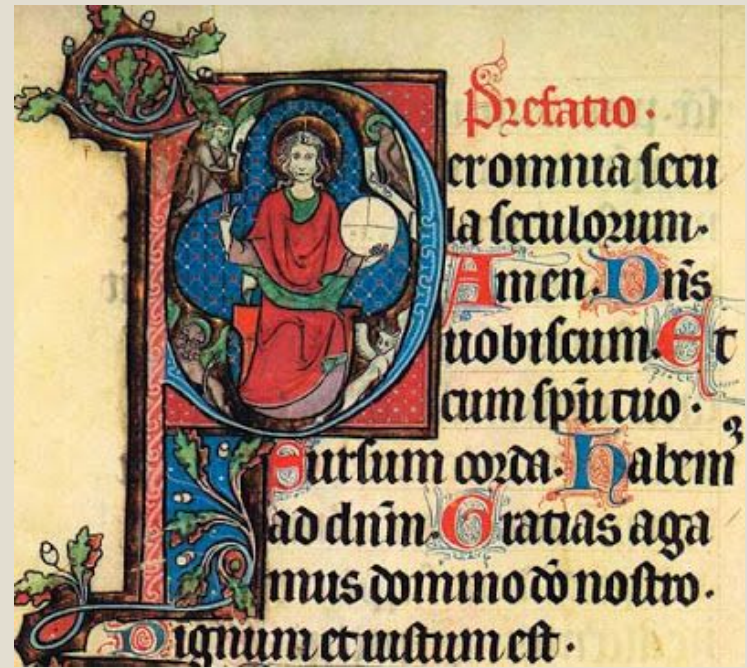 Prefatio·
Per omnia secu
la seculorum·
Amen. Dn̄s
uobiscum. Et
cum sp̄u tuo·
Sursum corda· Habem⁹
ad dn̄m. Gratias aga
mus domino dō nostro·
Dignum et iustum est·